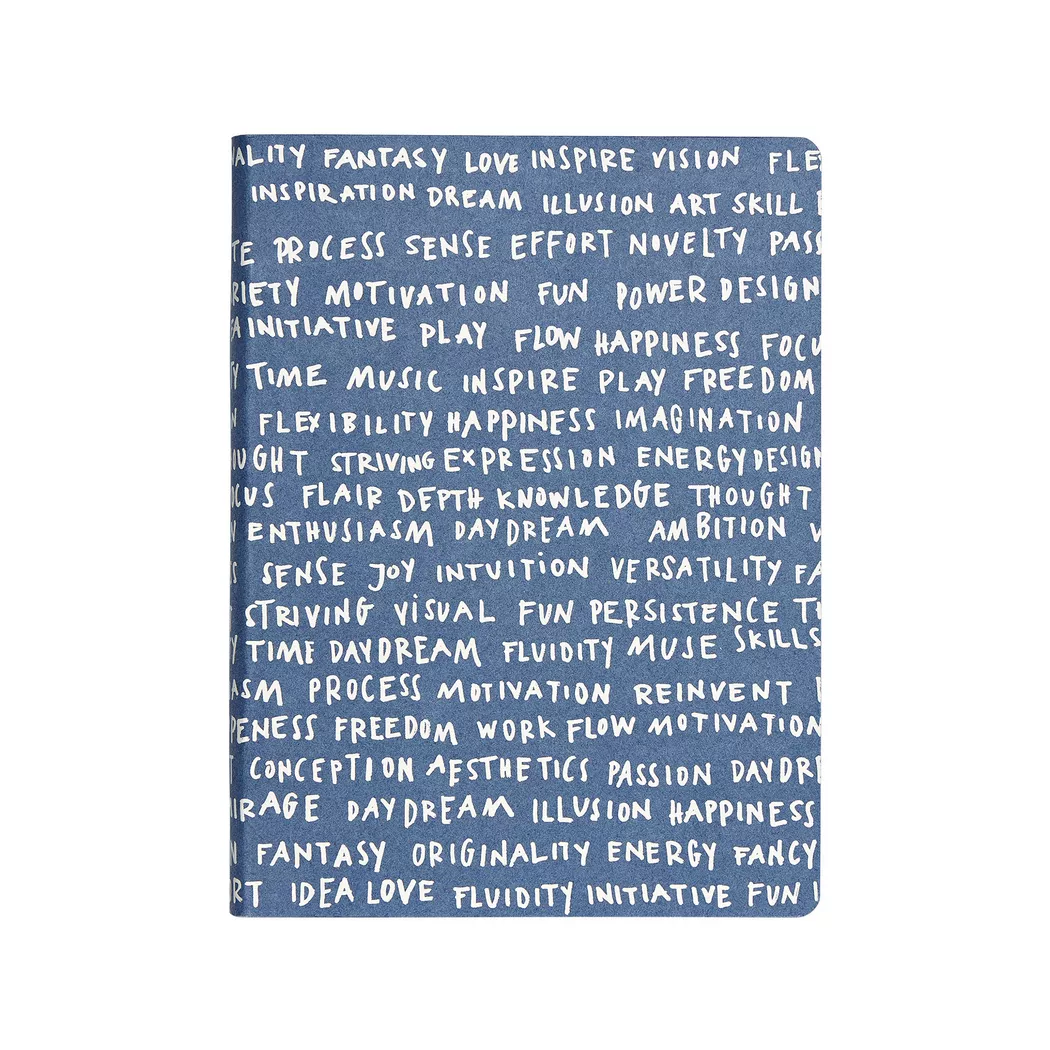 NALITY FANTASY LOVE INSPIRE VISION FLE
INSPIRATION DREAM ILLUSION ART SKILL
TE PROCESS SENSE EFFORT NOVELTY PASS
RIETY MOTIVATION FUN POWER DESIGN
EA INITIATIVE PLAY FLOW HAPPINESS FOCU
Y TIME MUSIC INSPIRE PLAY FREEDOM
N FLEXIBILITY HAPPINESS IMAGINATION
OUGHT STRIVING EXPRESSION ENERGY DESIGN
OCUS FLAIR DEPTH KNOWLEDGE THOUGHT
N ENTHUSIASM DAYDREAM AMBITION V
S SENSE JOY INTUITION VERSATILITY FA
STRIVING VISUAL FUN PERSISTENCE TH
Y TIME DAYDREAM FLUIDITY MUSE SKILLS
ASM PROCESS MOTIVATION REINVENT
PENESS FREEDOM WORK FLOW MOTIVATION
T CONCEPTION AESTHETICS PASSION DAYDRE
IRAGE DAYDREAM ILLUSION HAPPINESS
N FANTASY ORIGINALITY ENERGY FANCY
RT IDEA LOVE FLUIDITY INITIATIVE FUN